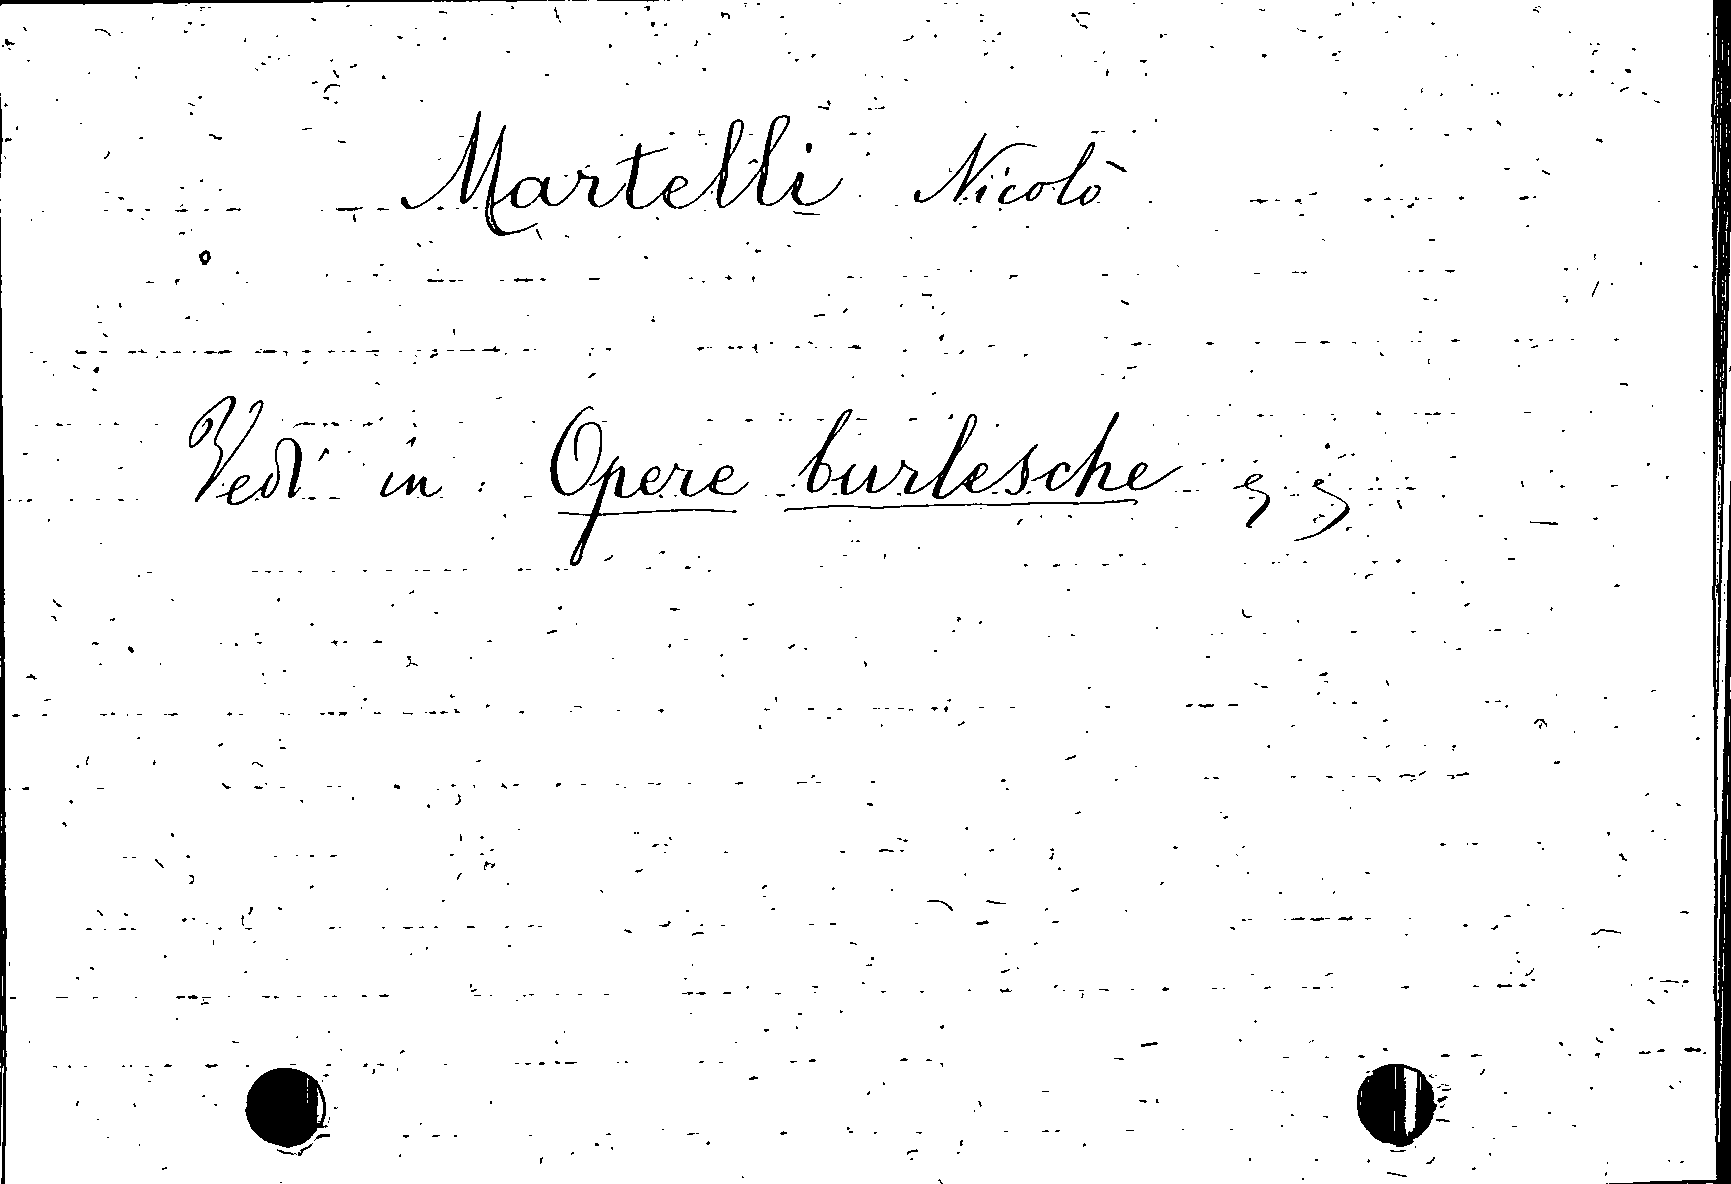 Martelli Nicolò
Vedi in Opere burlesche